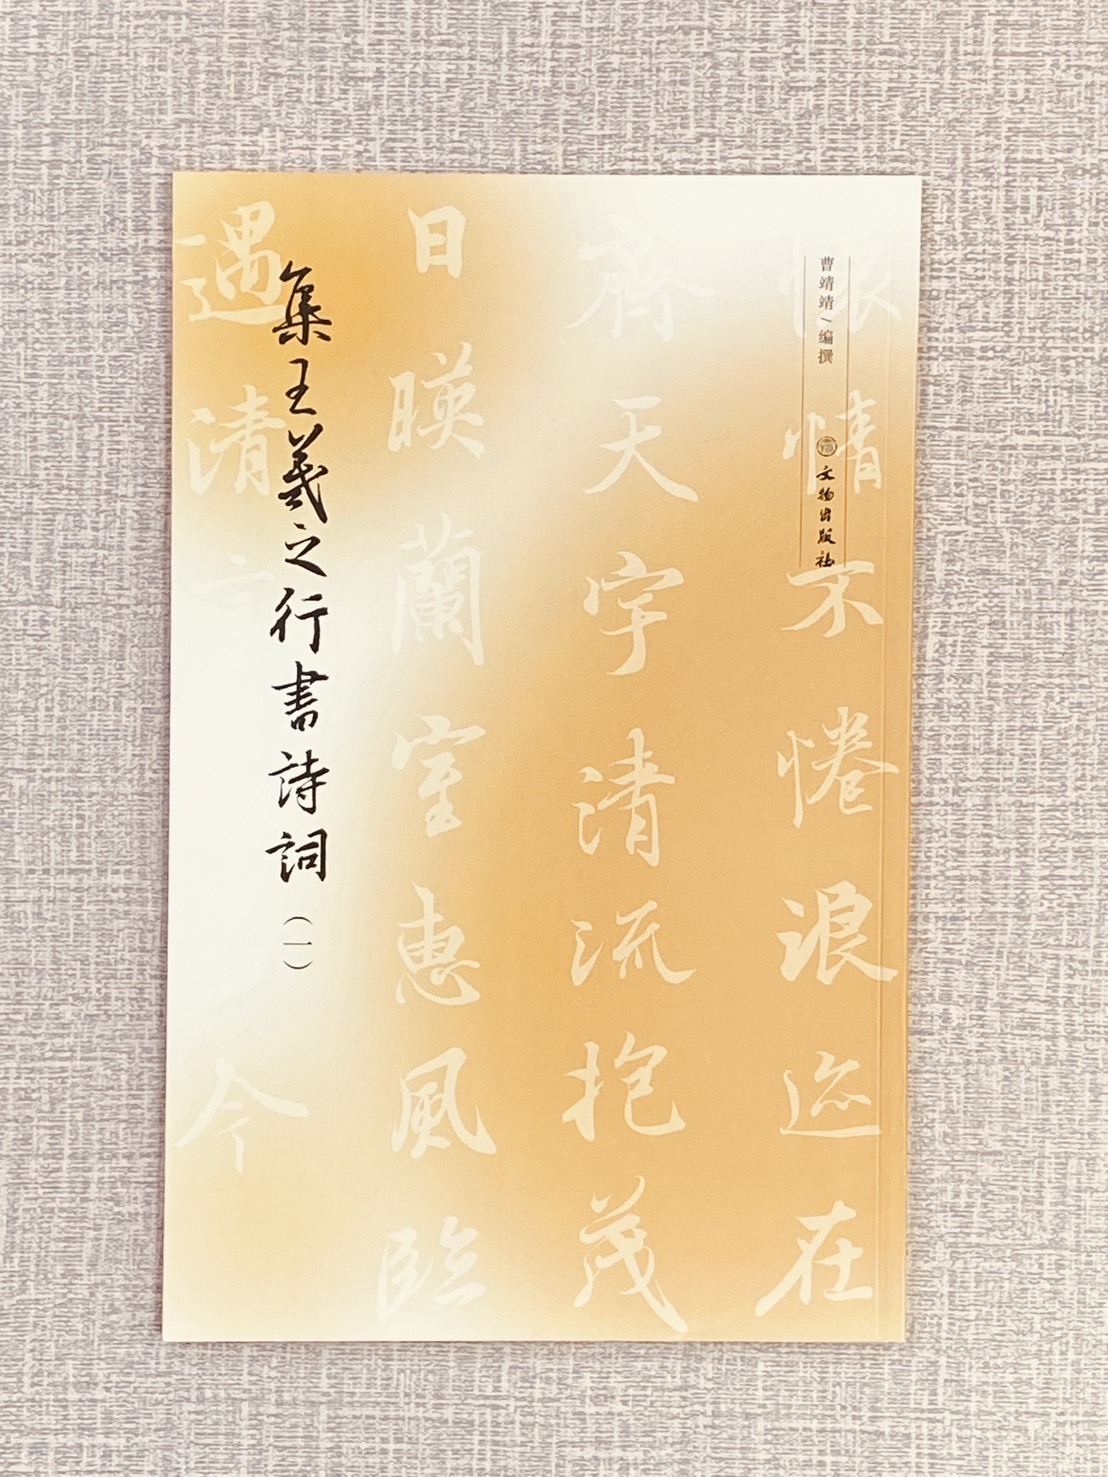 曹靖靖/编撰
文物出版社
怀情不惓浪迹在
齊天宇清流抱茂
日暎蘭室惠風臨
集王羲之行書詩詞（一）
遇清
今